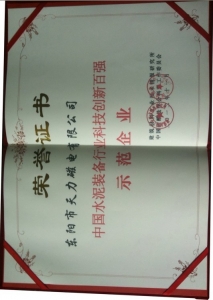 荣誉证书
东阳市天力磁电有限公司
中国水泥装备行业科技创新百强
示范企业